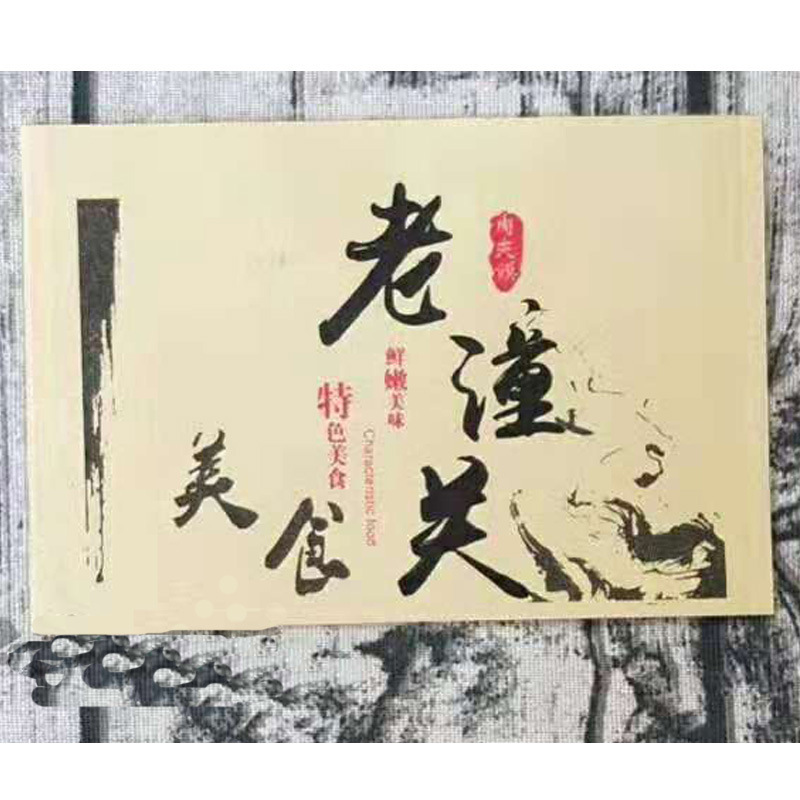 老潼关
美食
鲜嫩美味
特色美食
Characteristic food